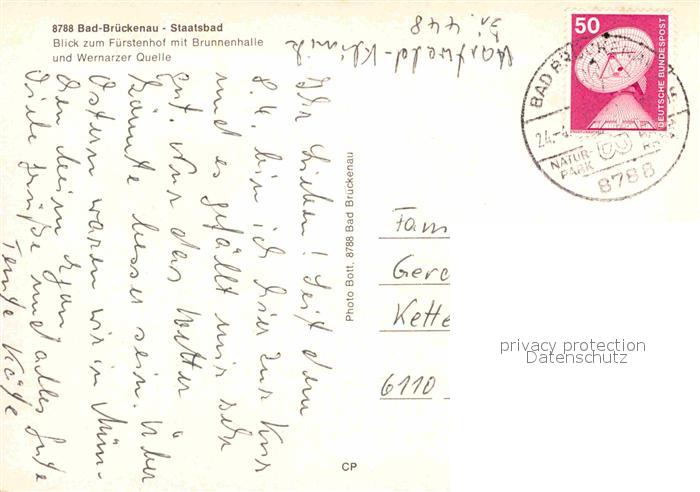 8788 Bad-Brückenau - Staatsbad
Blick zum Fürstenhof mit Brunnenhalle
und Wernarzer Quelle
Hartwald-Klinik
Zi. 448
Ihr Lieben! Seit dem
8.4. bin ich hier zur Kur
und es gefällt mir sehr
gut. Nur das Wetter
könnte besser sein. Über
Ostern waren wir in Mün-
Viele Grüße und alles Gute
Tante Käthe
Photo Bott, 8788 Bad Brückenau
CP
50
DEUTSCHE BUNDESPOST
BAD BRÜCKENAU
24.-4.
NATUR-
PARK
8788
Fam
Gerd
Kette
6110
privacy protection
Datenschutz